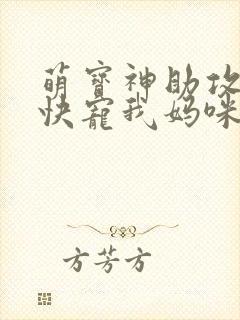 萌寶神助攻
快寵我媽咪
方芳方